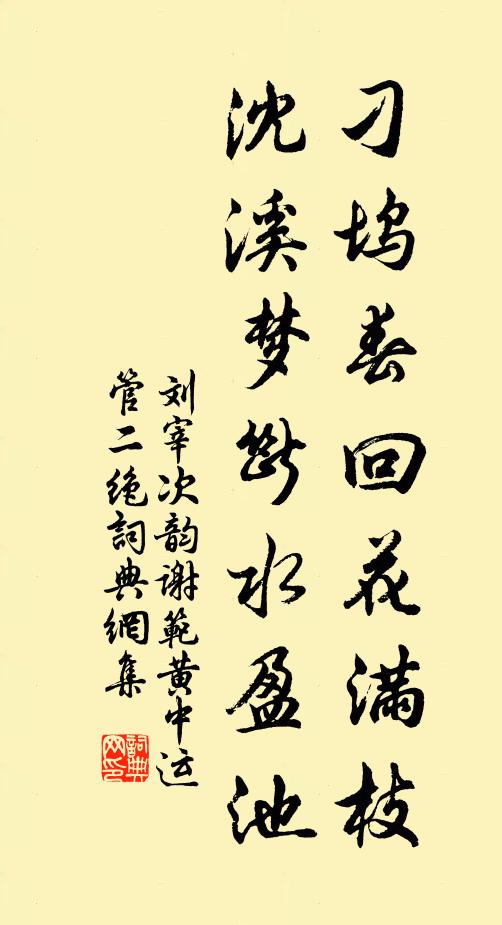 刁坞春回花满枝
沈溪梦断水盈池
刘宰次韵谢範黄中运
管二绝詞典網集
詞典网印